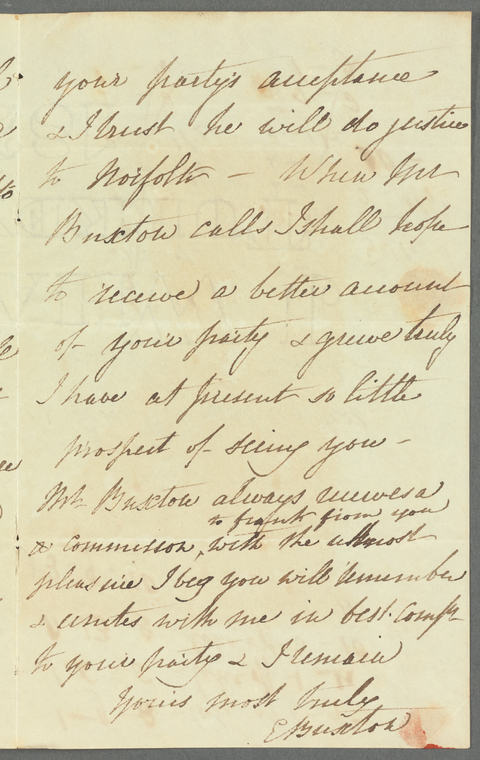 your party's acceptance
& I trust he will do justice
to Norfolk – When Mr
Buxton calls I shall hope
to receive a better account
of your party & grieve truly
I have at present so little
prospect of seeing you –
Mr Buxton always receives a
to frank from you
a commission, with the utmost
pleasure I beg you will remember
& unites with me in best Compts
to your party & I remain
Yours most truly
E Buxton